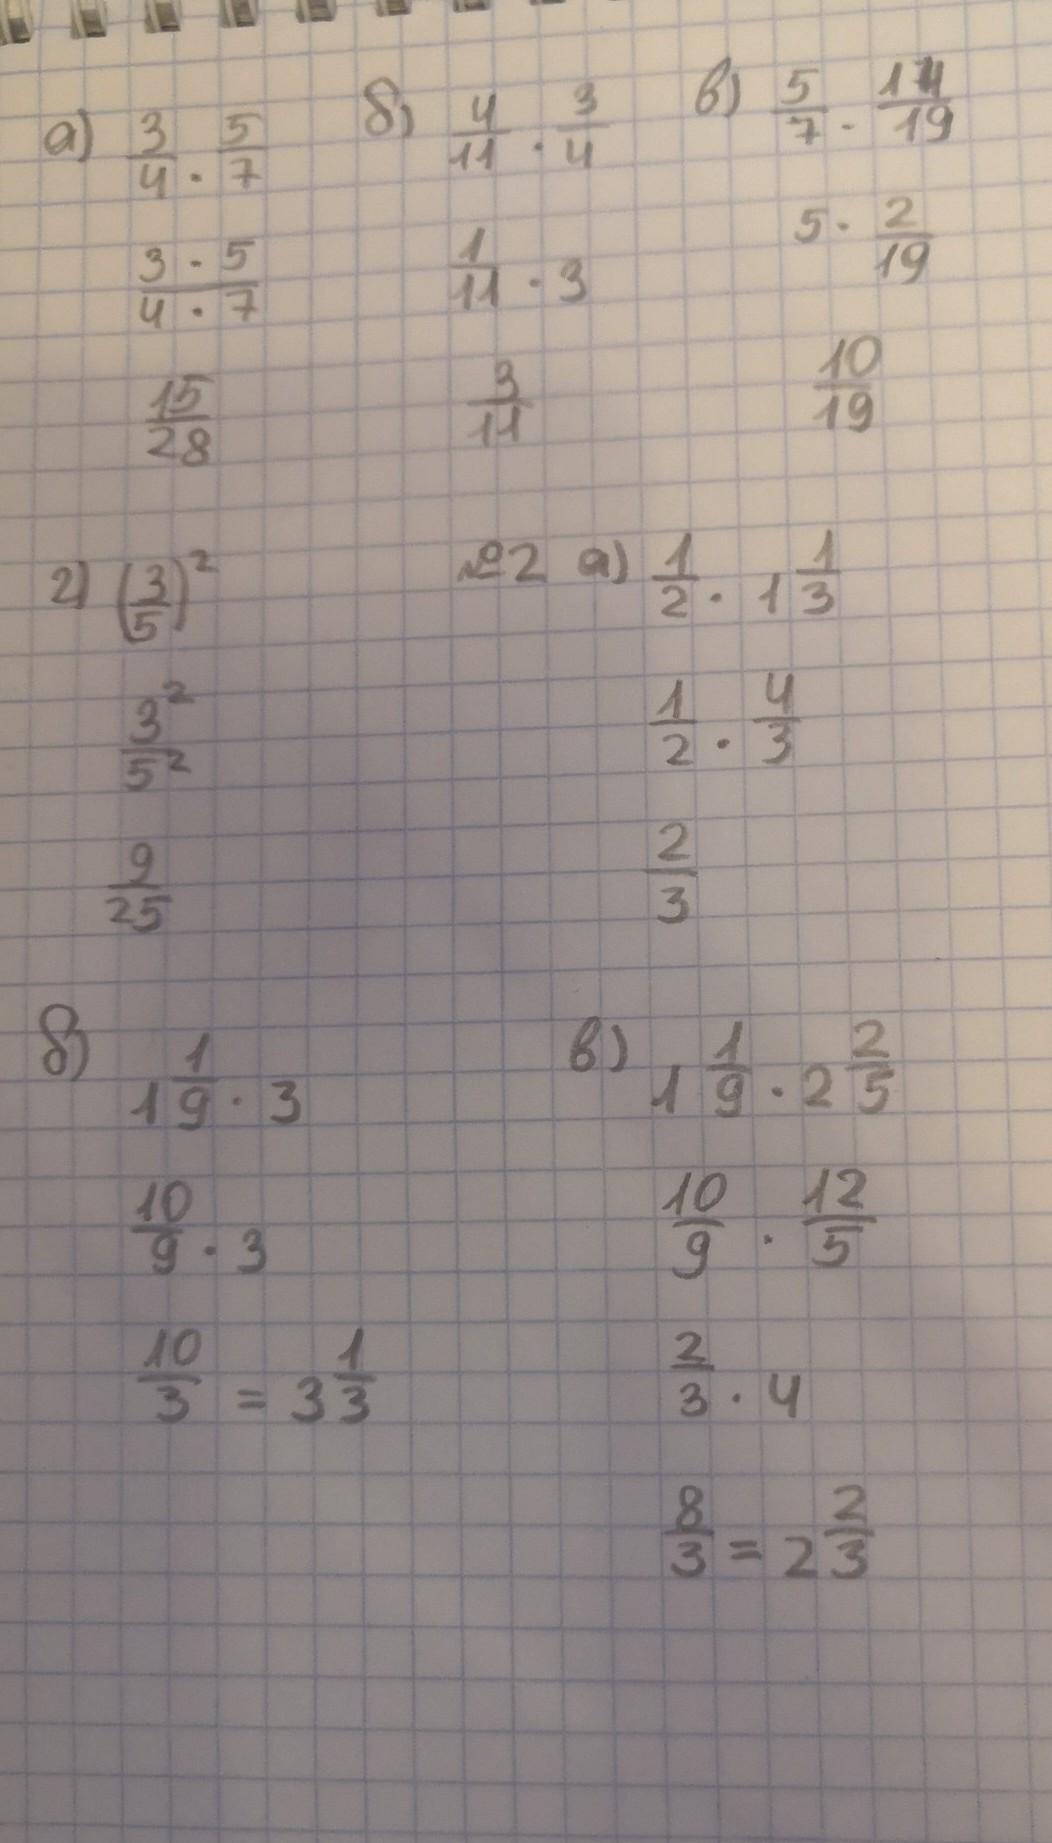 а) 3/4 · 5/7
3 · 5 / 4 · 7
15/28
б) 4/11 · 3/4
1/11 · 3
3/11
в) 5/7 · 14/19
5 · 2/19
10/19
г) (3/5)²
3²/5²
9/25
№2 а) 1/2 · 1 1/3
1/2 · 4/3
2/3
б) 1 1/9 · 3
10/9 · 3
10/3 = 3 1/3
в) 1 1/9 · 2 2/5
10/9 · 12/5
2/3 · 4
8/3 = 2 2/3